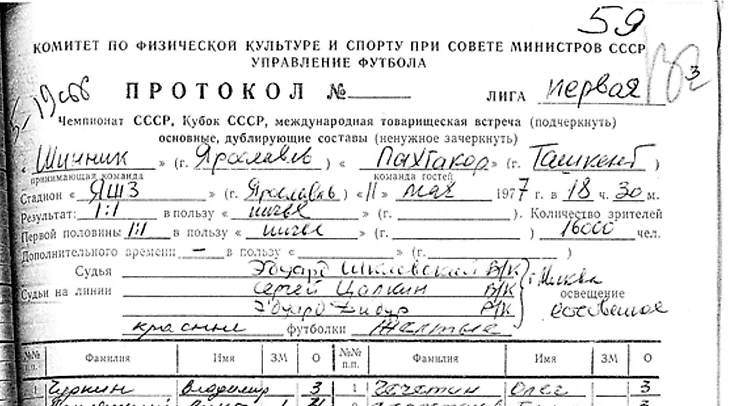 59
КОМИТЕТ ПО ФИЗИЧЕСКОЙ КУЛЬТУРЕ И СПОРТУ ПРИ СОВЕТЕ МИНИСТРОВ СССР
УПРАВЛЕНИЕ ФУТБОЛА
ПРОТОКОЛ № ЛИГА первая 3
Чемпионат СССР, Кубок СССР, международная товарищеская встреча (подчеркнуть)
основные, дублирующие составы (ненужное зачеркнуть)
« Шинник » (г. Ярославль ) « Пахтакор » (г. Ташкент )
принимающая команда команда гостей
Стадион « ЯШЗ » (г. Ярославль ) « 11 » мая 1977 г. в 18 ч. 30 м.
Результат: 1:1 в пользу « ничья » (г. ). Количество зрителей
Первой половины 1:1 в пользу « ничья » (г. ) 16000 чел.
Дополнительного времени — в пользу « » (г. )
Судья Эдуард Шкловский В/К
Судьи на линии Сергей Цапкин В/К г. Москва освещение
Эдуард Р/К естественное
красные футболки желтые
№№ п.п. Фамилия Имя ЗМ О №№ п.п. Фамилия Имя ЗМ О
1 Чуркин Владимир 3 1 Олег 3